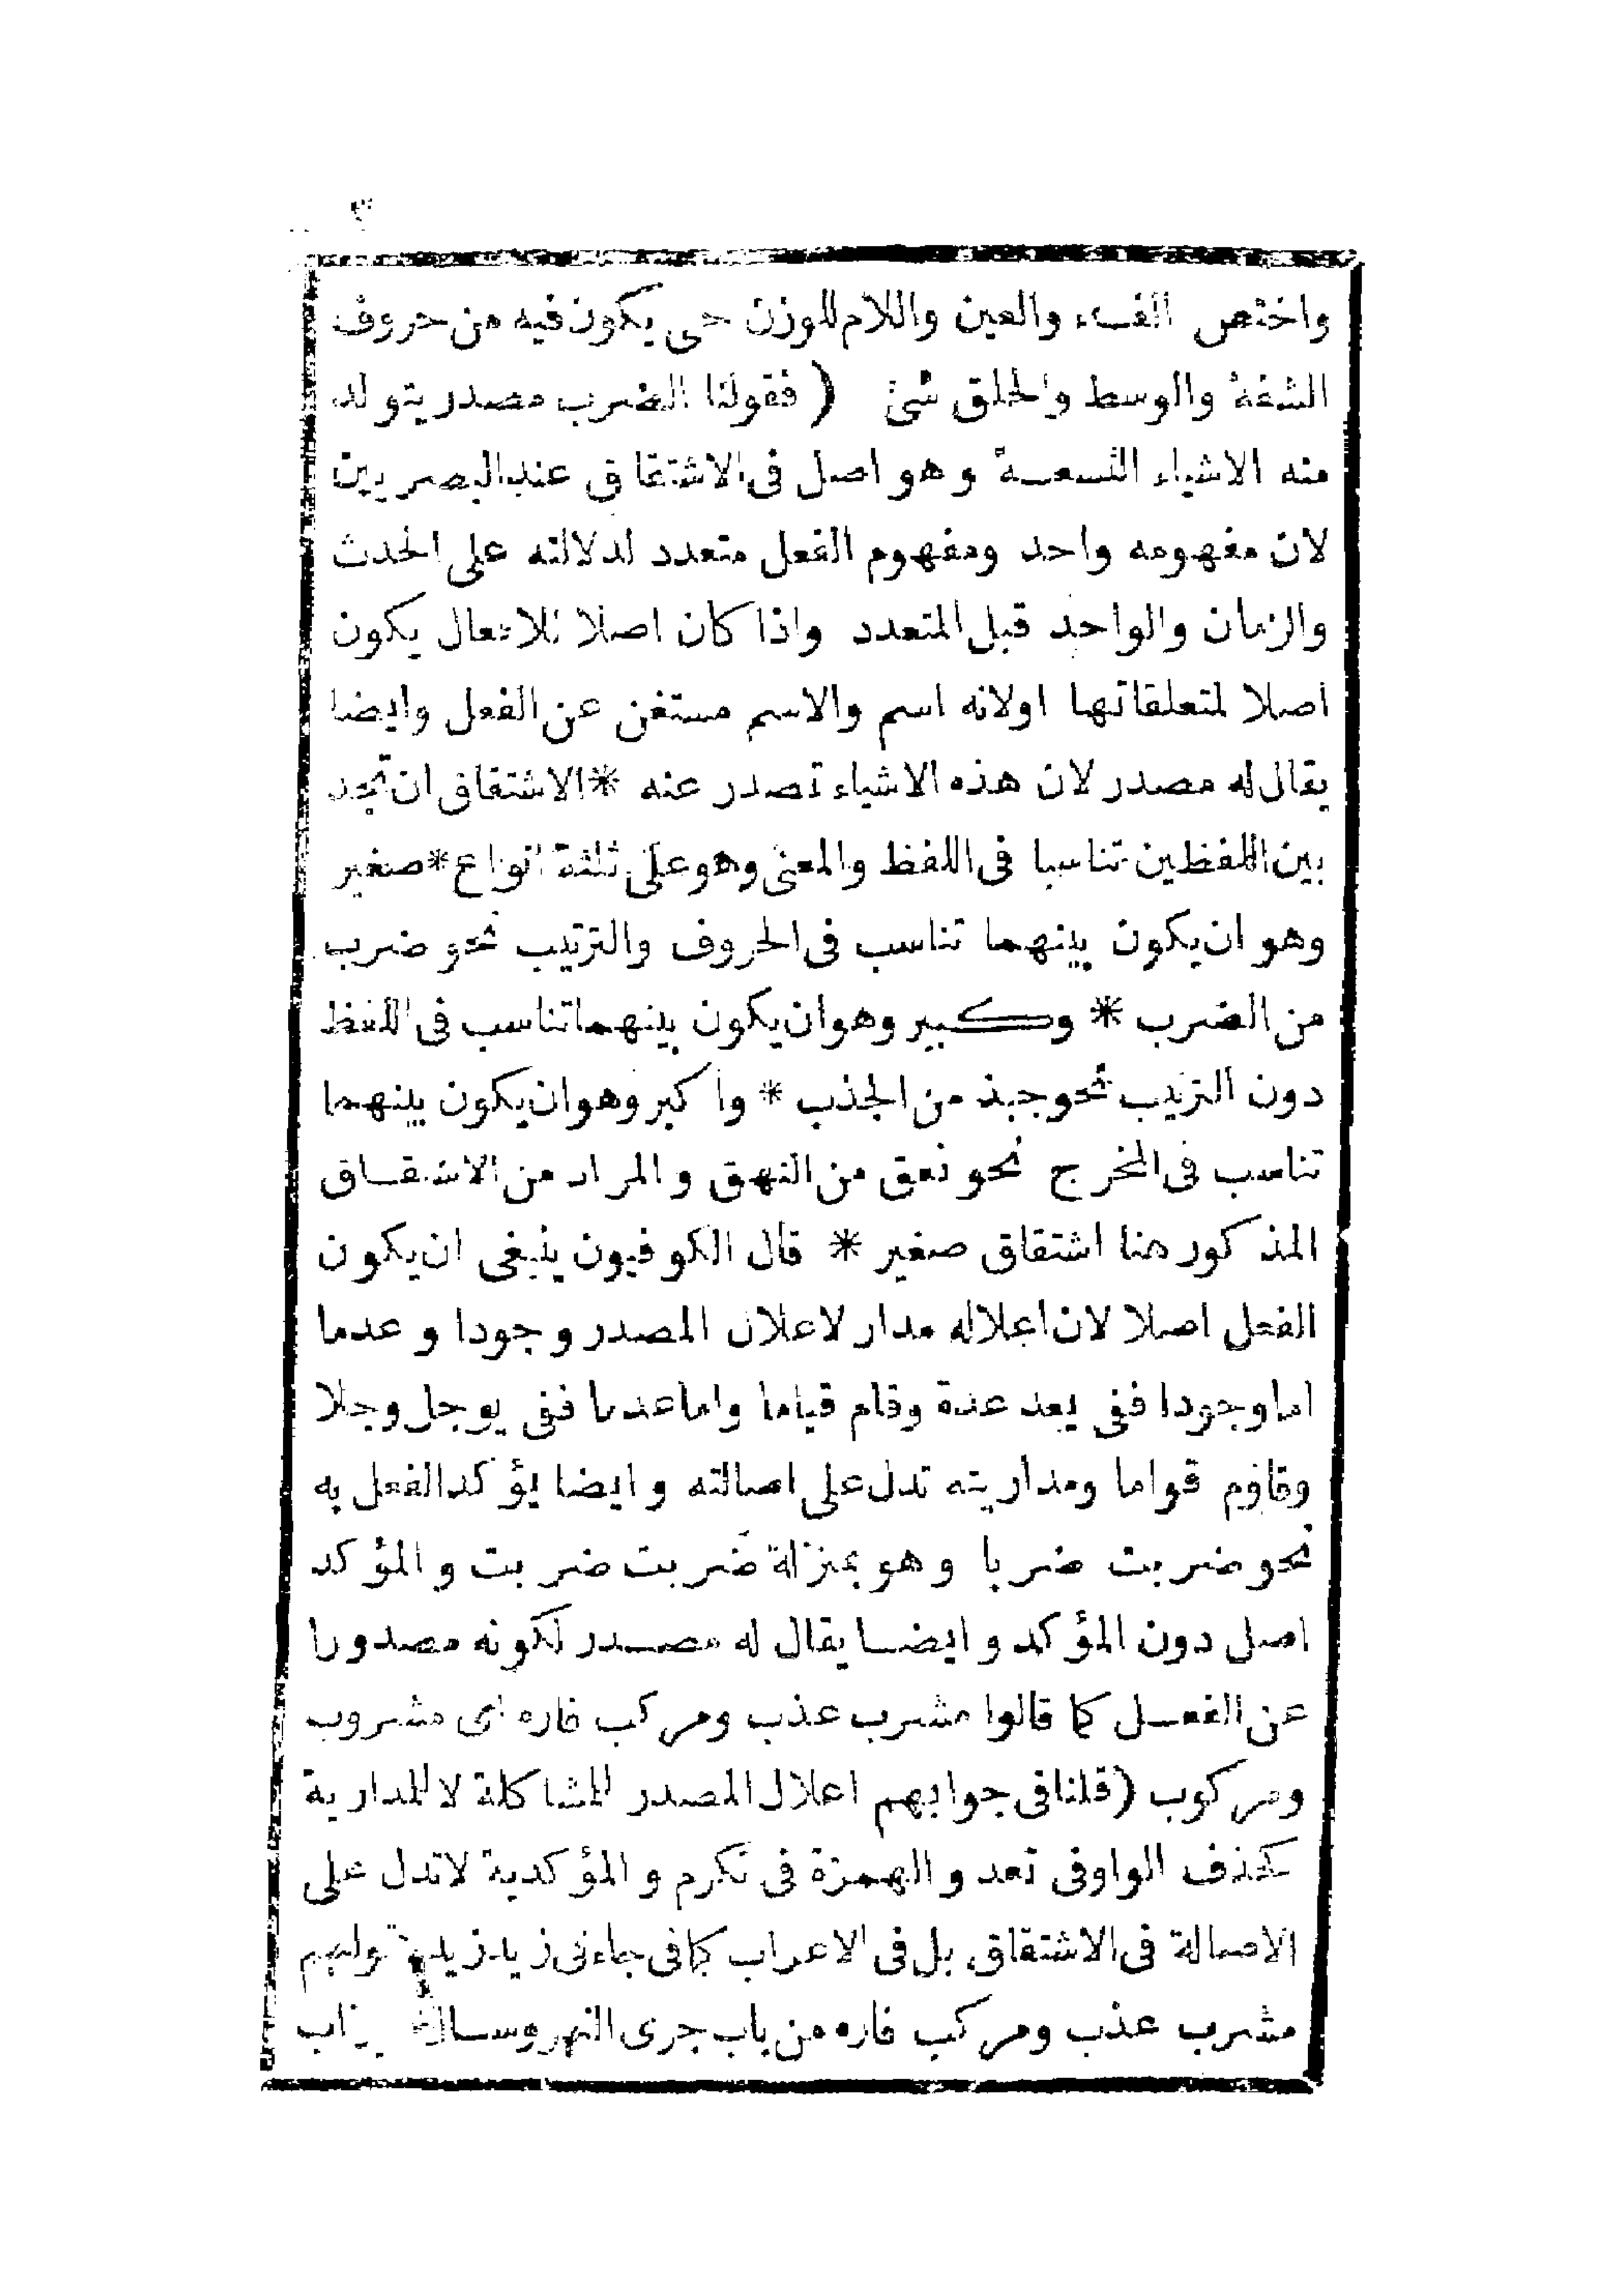 ٣
واختص الفاء والعين واللام للوزن حتى يكون فيه من حروف
الشفة والوسط والحلق شئ ( فقولنا الضرب مصدر يتولد
منه الاشياء التسعة وهو اصل فى الاشتقاق عند البصريين
لان مفهومه واحد ومفهوم الفعل متعدد لدلالته على الحدث
والزمان والواحد قبل المتعدد واذا كان اصلا للافعال يكون
اصلا لمتعلقاتها اولانه اسم والاسم مستغن عن الفعل وايضا
يقال له مصدر لان هذه الاشياء تصدر عنه * الاشتقاق ان تجد
بين اللفظين تناسبا فى اللفظ والمعنى وهو على ثلثة انواع * صغير
وهو ان يكون بينهما تناسب فى الحروف والترتيب نحو ضرب
من الضرب * وكبير وهو ان يكون بينهما تناسب فى اللفظ
دون الترتيب نحو جبذ من الجذب * واكبر وهو ان يكون بينهما
تناسب فى المخرج نحو نعق من النهق والمراد من الاشقاق
المذكور هنا اشتقاق صغير * قال الكوفيون ينبغى ان يكون
الفعل اصلا لان اعلاله مدار لاعلال المصدر وجودا وعدما
اما وجودا ففى يعد عدة وقام قياما واما عدما ففى يوجل وجلا
وقاوم قواما ومداريته تدل على اصالته وايضا يؤكد الفعل به
نحو ضربت ضربا وهو بمنزلة ضربت ضربت والمؤكد
اصل دون المؤكد وايضا يقال له مصدر لكونه مصدورا
عن الفعل كما قالوا مشرب عذب ومركب فاره اى مشروب
ومركوب (قلنا فى جوابهم اعلال المصدر للمشاكلة لا للمدارية
كحذف الواو فى تعد والهمزة فى تكرم والمؤكدية لا تدل على
الاصالة فى الاشتقاق بل فى الاعراب كما فى جاءنى زيد زيد وقولهم
مشرب عذب ومركب فاره من باب جرى النهر وسال